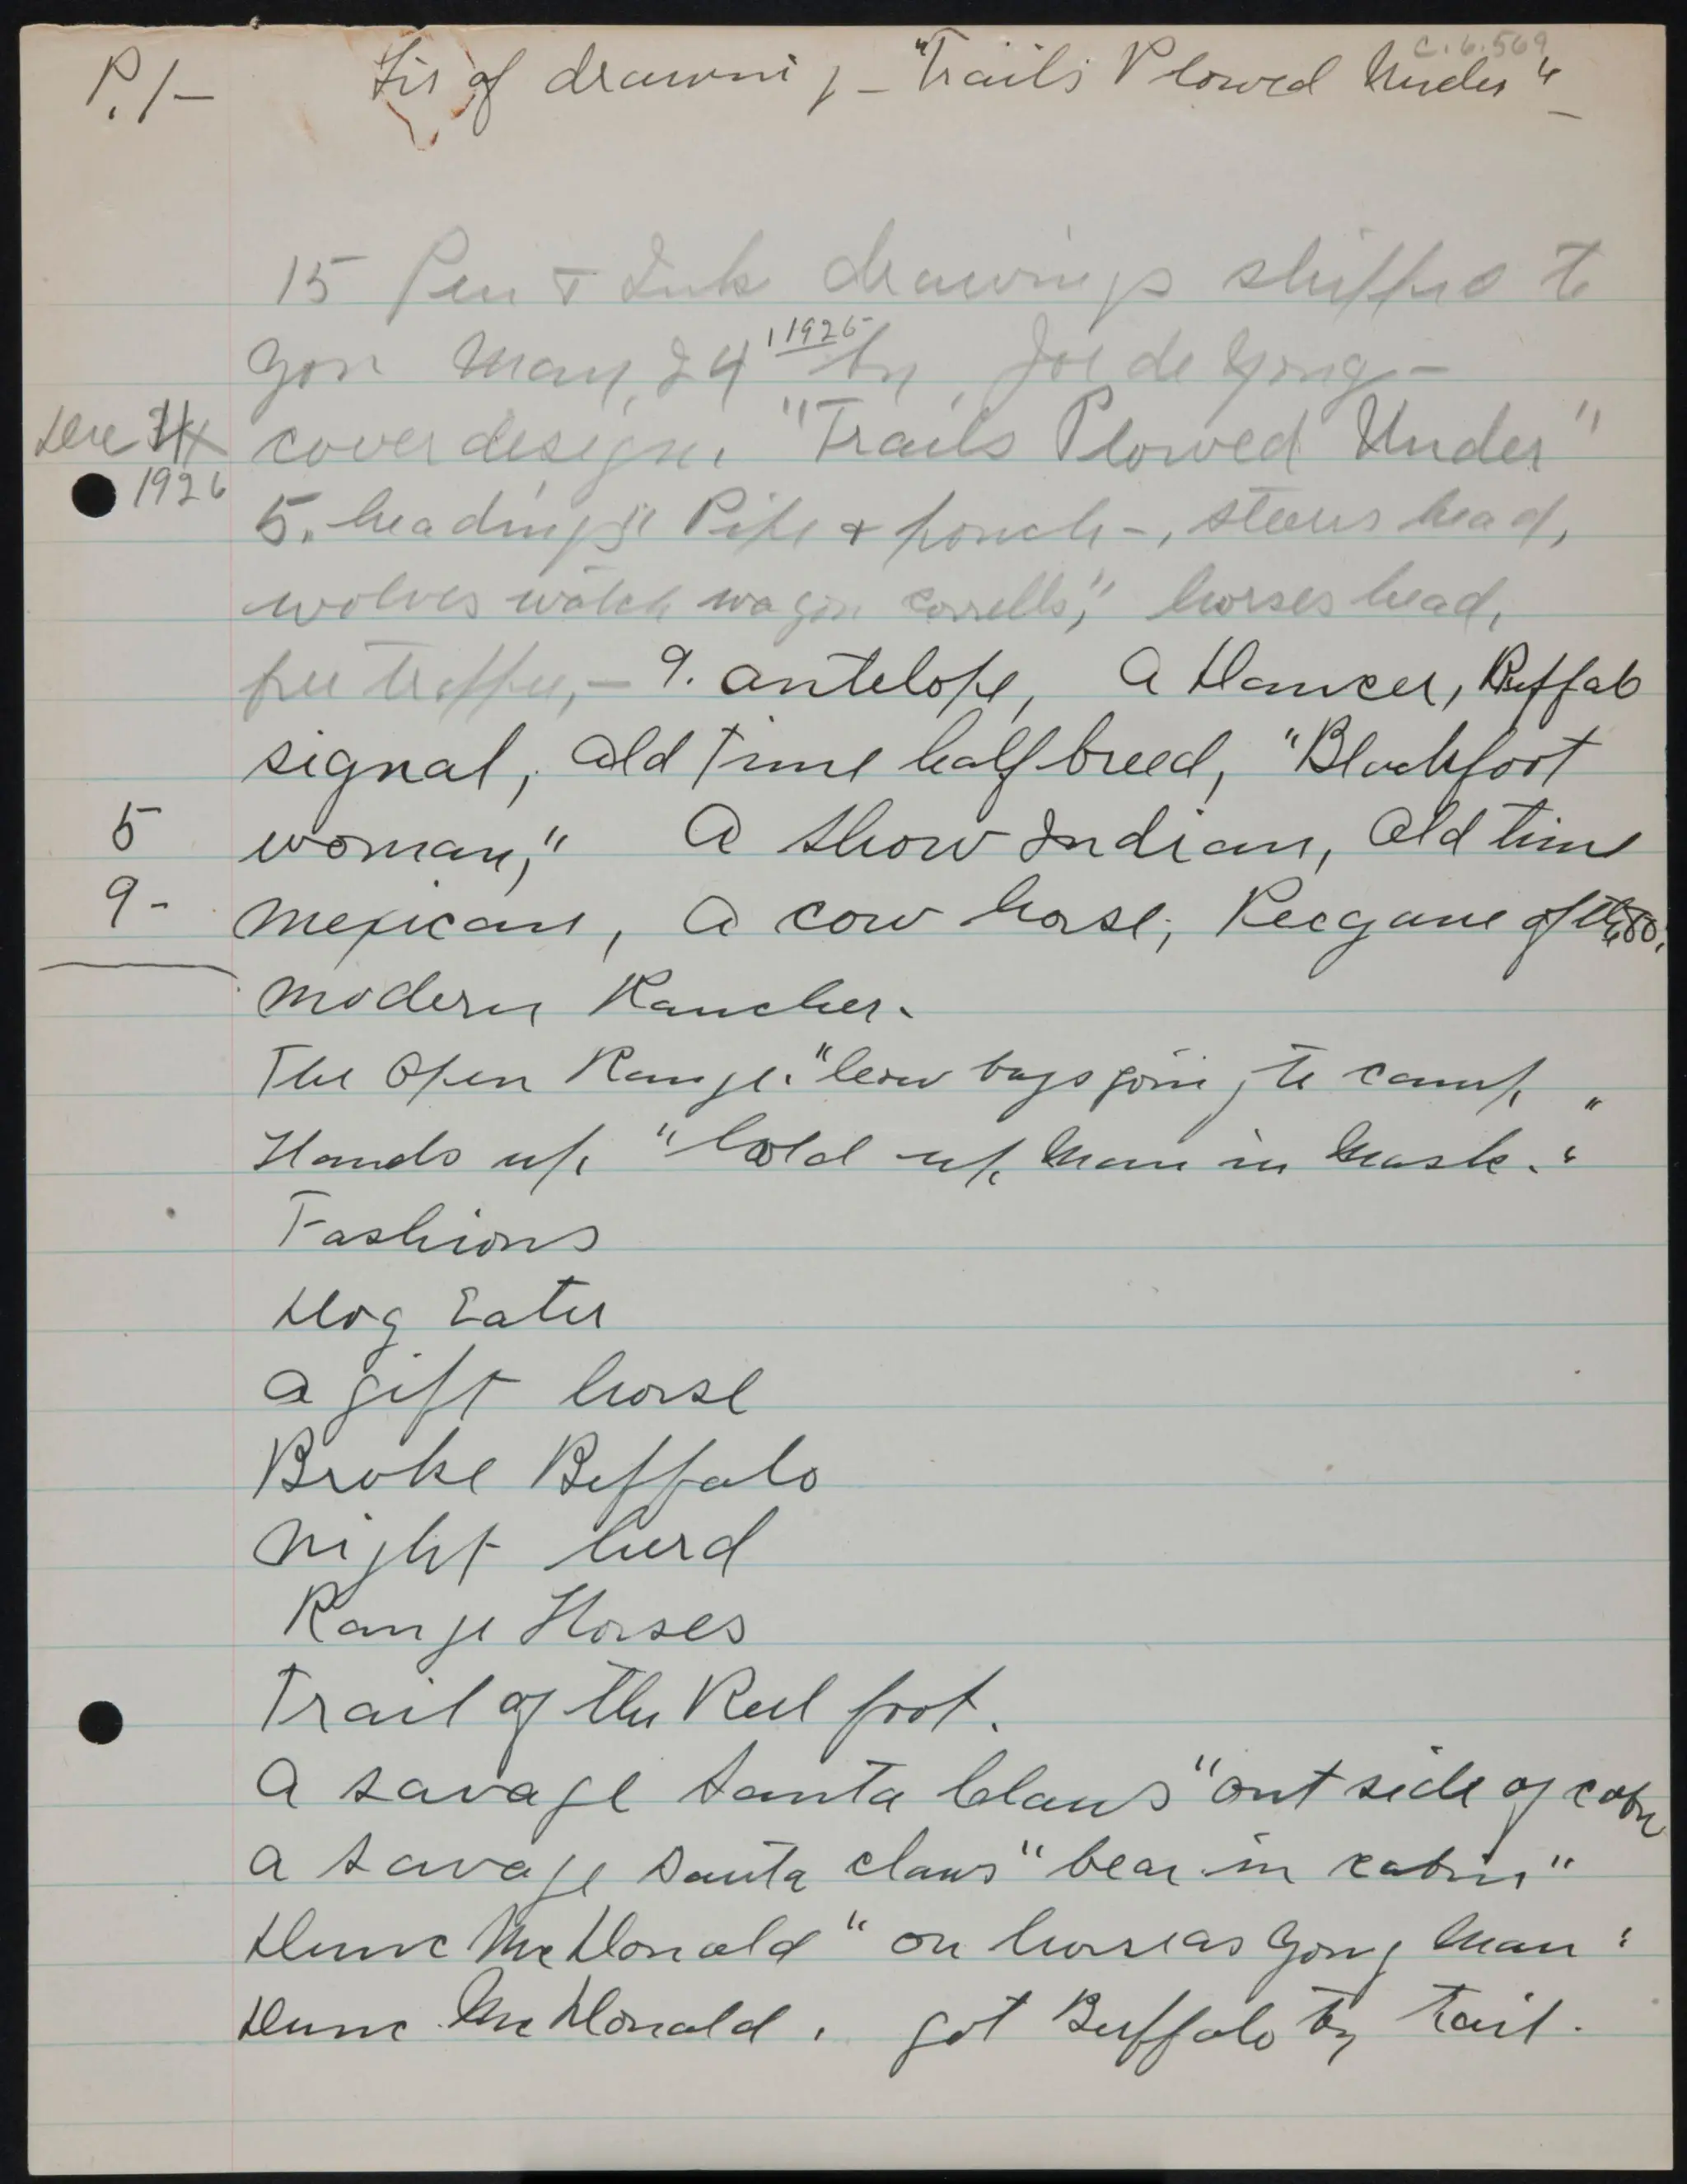 C.6.569
P. 1 – Lis of drawing – "Trails Plowed Under"
15 Pen & Ink drawings shipped to
you May, 24, 1926 by, Joe de Yong –
Dec
1926
cover design, "Trails Plowed Under"
5. headings" Pipe & pouch –, steers head,
wolves watch wagon corrells," horses head,
fur trapper, – 9. antelope, A Dancer, Buffalo
signal, Old Time half breed, "Blackfoot
5 woman," A Show Indian, Old time
9 - Mexican, A cow horse, Peegane of the 80.
modern Rancher.
The Open Range. "Cow boys going to camp"
Hands up, "hold up man in mask."
Fashions
Dog Eater
a gift horse
Broke Buffalo
Night herd
Range Horses
Trail of the Reel foot.
A savage Santa Claus "out side of cabin
a savage Santa claus "bear in cabin"
Dunc McDonald "on horse as young man"
Dunc McDonald. got Buffalo by tail.